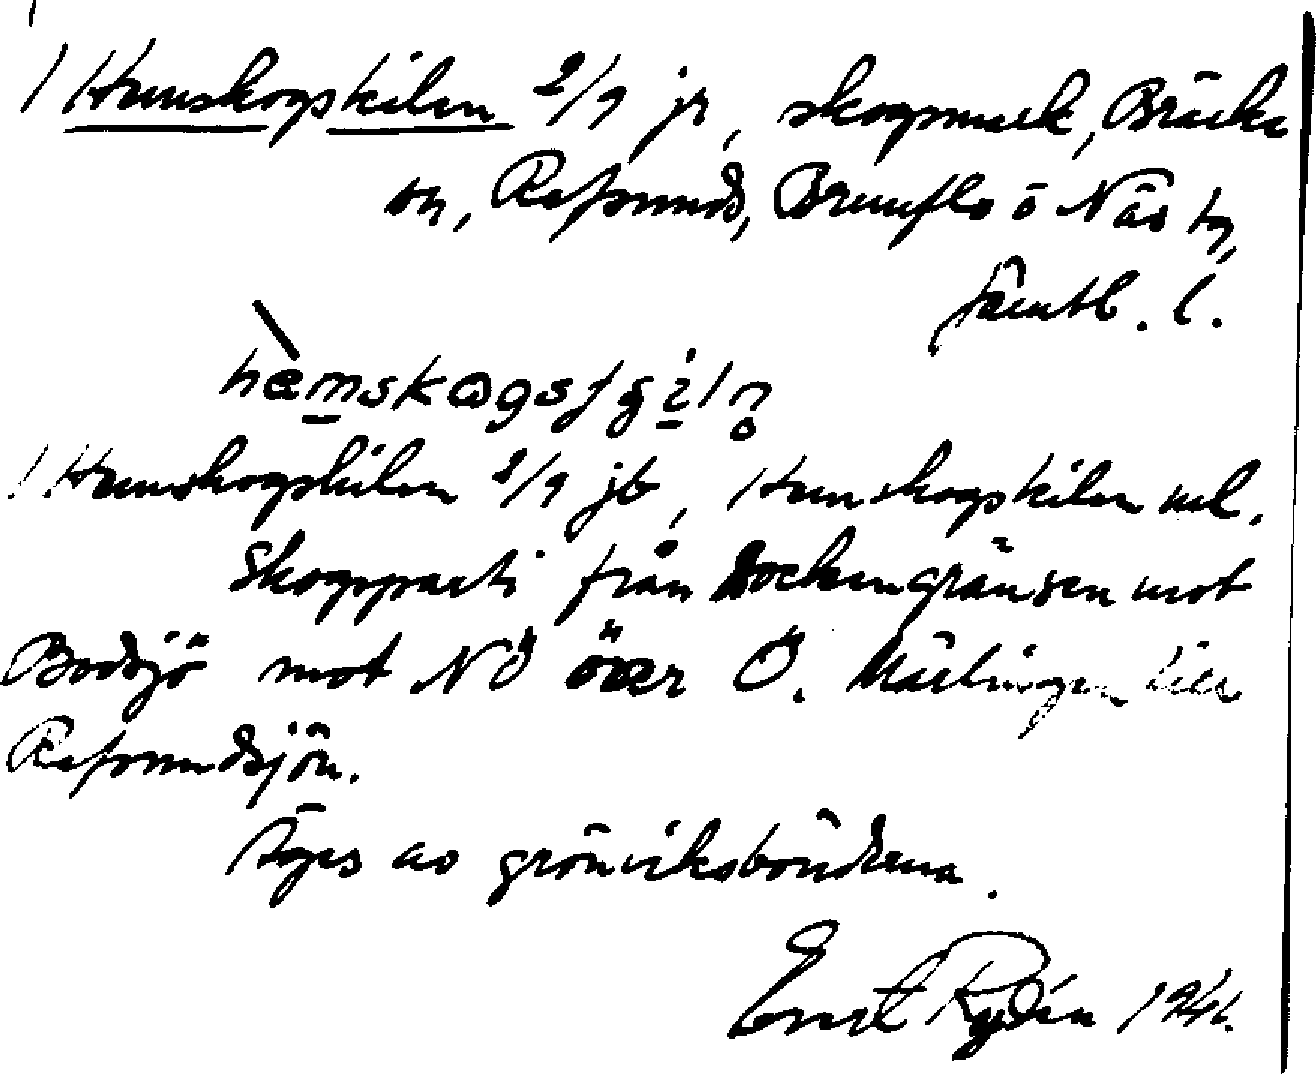 / Hemskogskilen 2/9 jr, skogsmark, Bräcke
sn, Refsunds, Brunflo o Näs tg,
Jämtl. l.
hæmskogsʃgilṇ
/ Hemskogskilen 2/9 jb, Hemskogskilen ul.
Skogsparti från sockengränsen mot
Bodsjö mot NÖ över Ö. Mäelingen till
Refsundsjön.
Äges av grönviksbönderna.
Ernst Rydén 1941.